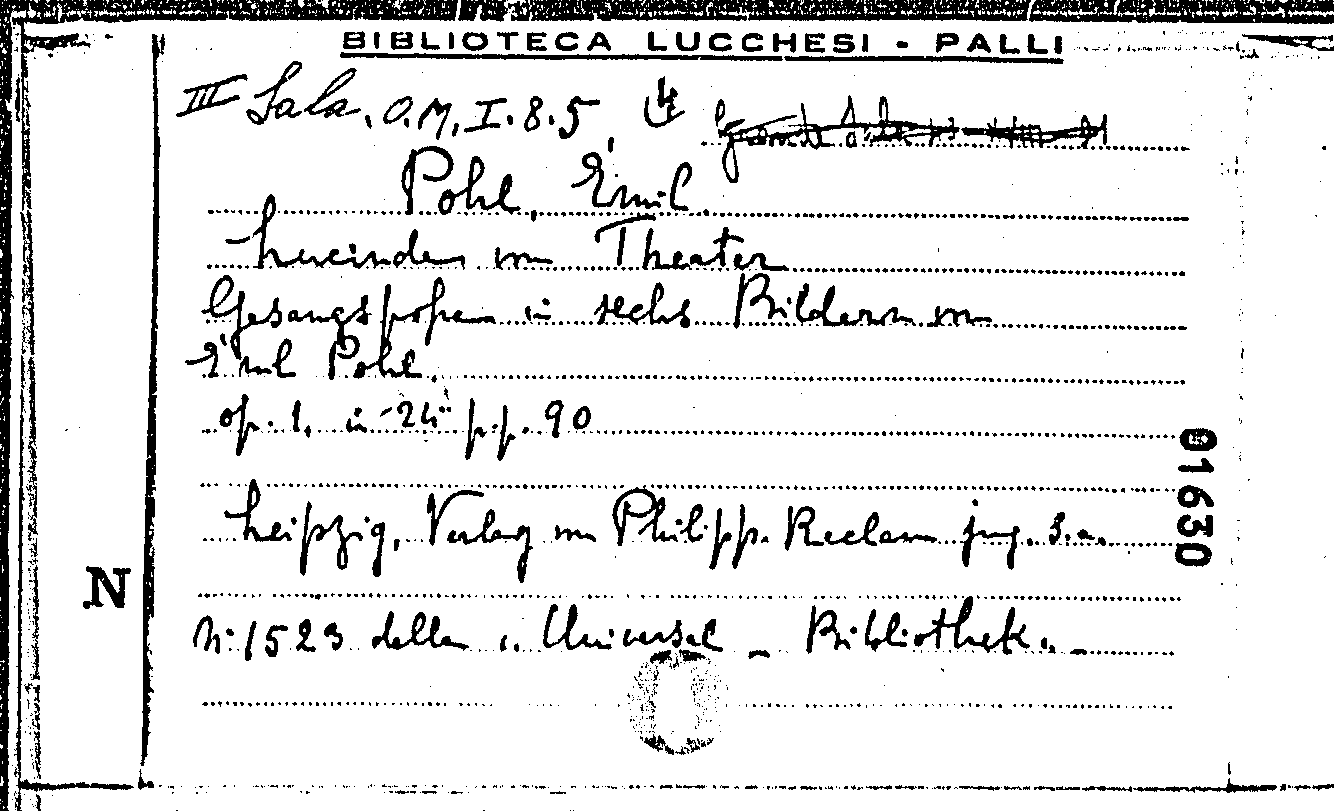 BIBLIOTECA LUCCHESI - PALLI
III Sala. O.M. I. 8. 5
Pohl, Emil.
Theater
Gesangspossen in sechs Bildern von
Emil Pohl.
op. 1, in-24° pp. 90
01630
Leipzig, Verlag von Philipp. Reclam jun. s.a.
N
N. 1523 della "Universal - Bibliothek." -